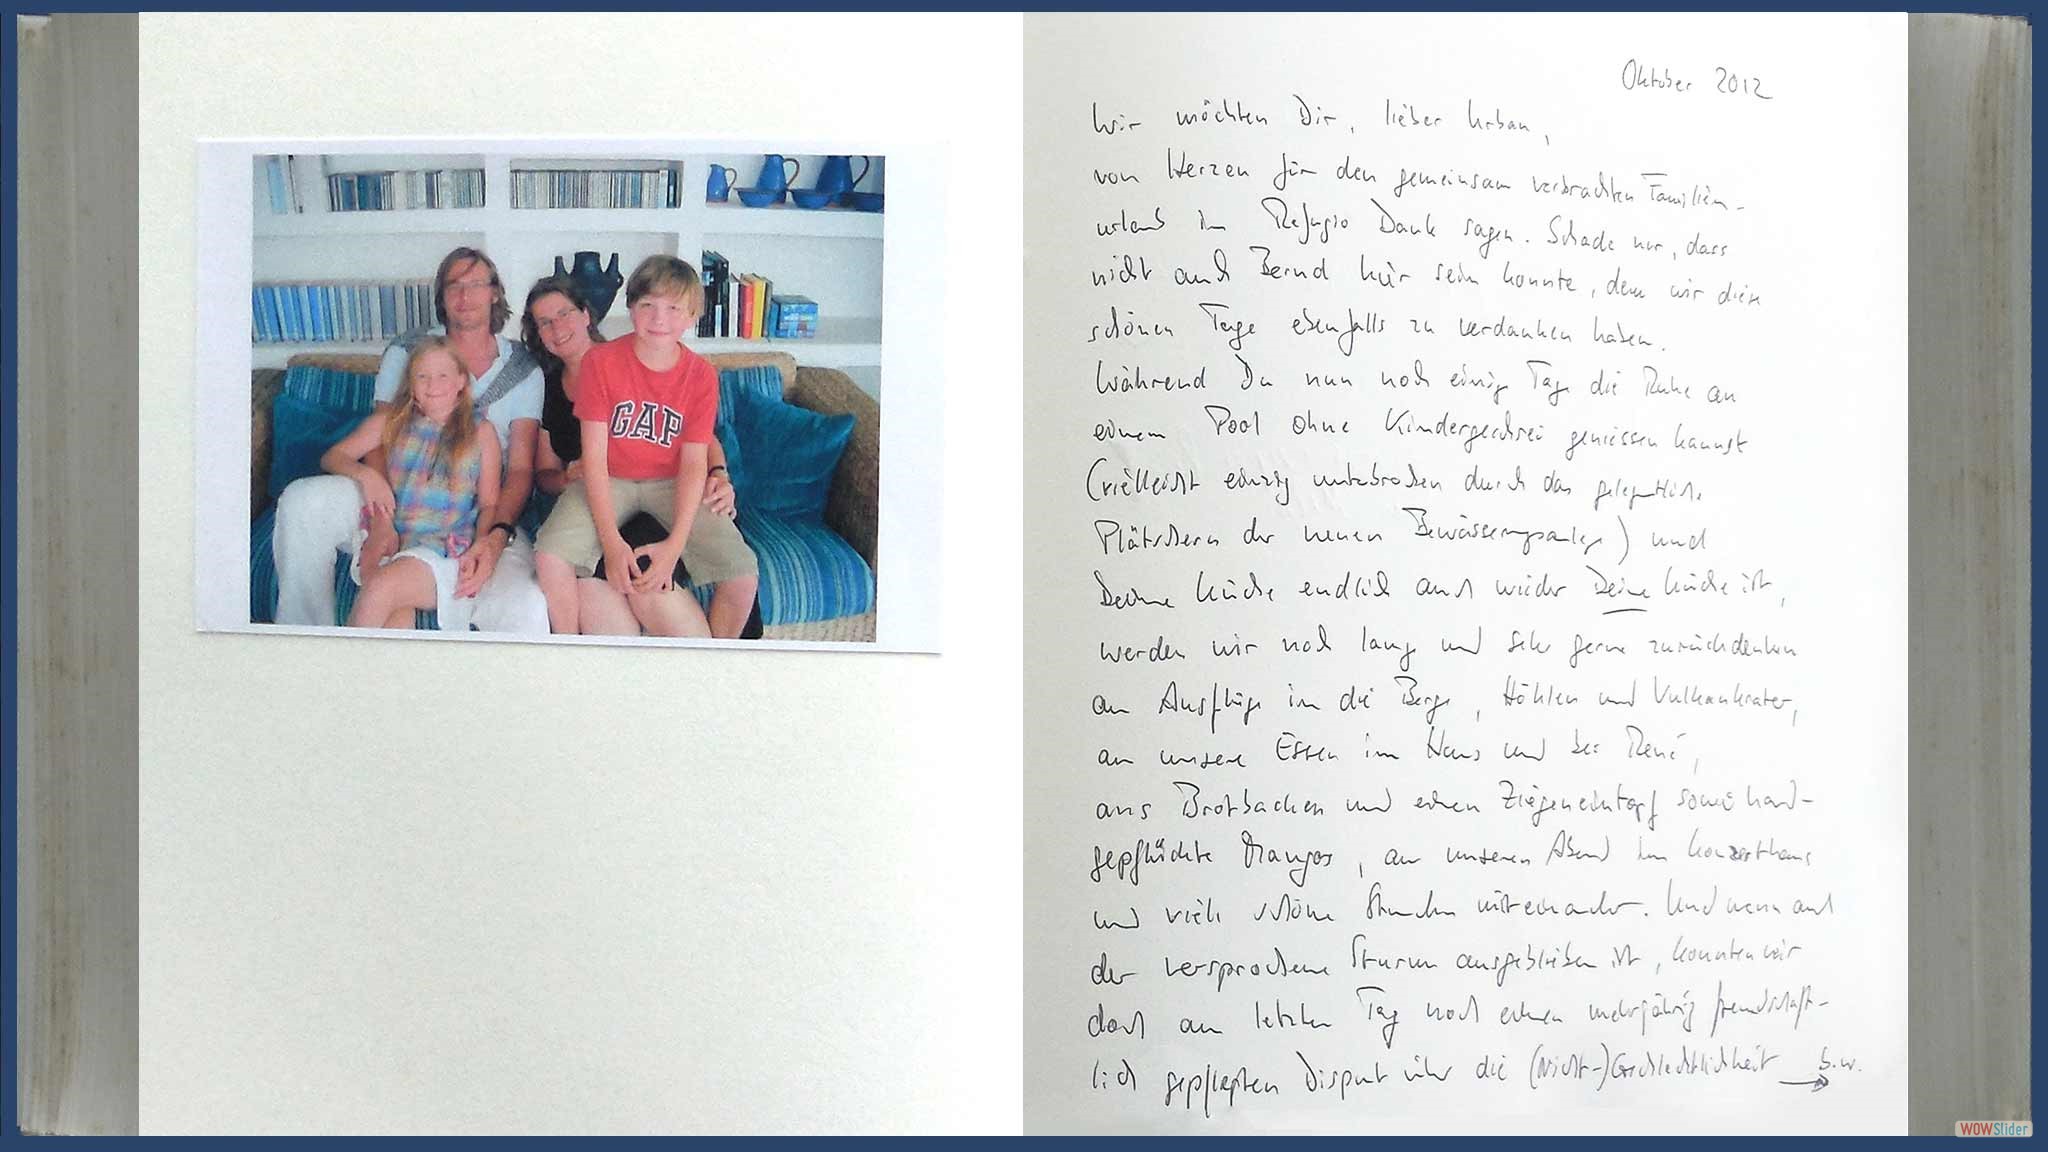 GAP
Oktober 2012
Wir möchten Dir, lieber Urban,
von Herzen für den gemeinsam verbrachten Familien-
urlaub im Refugio Dank sagen. Schade nur, dass
nicht auch Bernd hier sein konnte, dem wir diese
schönen Tage ebenfalls zu verdanken haben.
Während Du nun noch einige Tage die Ruhe an
einem Pool ohne Kindergeschrei geniessen kannst
(vielleicht einzig unterbrochen durch das gelegentliche
Plätschern der neuen Bewässerungsanlage) und
Deine Küche endlich auch wieder Deine Küche ist,
werden wir noch lang und sehr gerne zurückdenken
an Ausflüge in die Berge, Höhlen und Vulkankrater,
an unsere Essen im Haus und bei René,
ans Brotbacken und einen Ziegeneintopf sowie hand-
gepflückte Mangos, an unseren Abend im Konzerthaus
und viele schöne Stunden miteinander. Und wenn auch
der versprochene Sturm ausgeblieben ist, konnten wir
doch am letzten Tag noch einen mehrjährig freundschaft-
lich gepflegten Disput über die (Nicht-)Geschlechtlichkeit → b.w.
WOWSlider